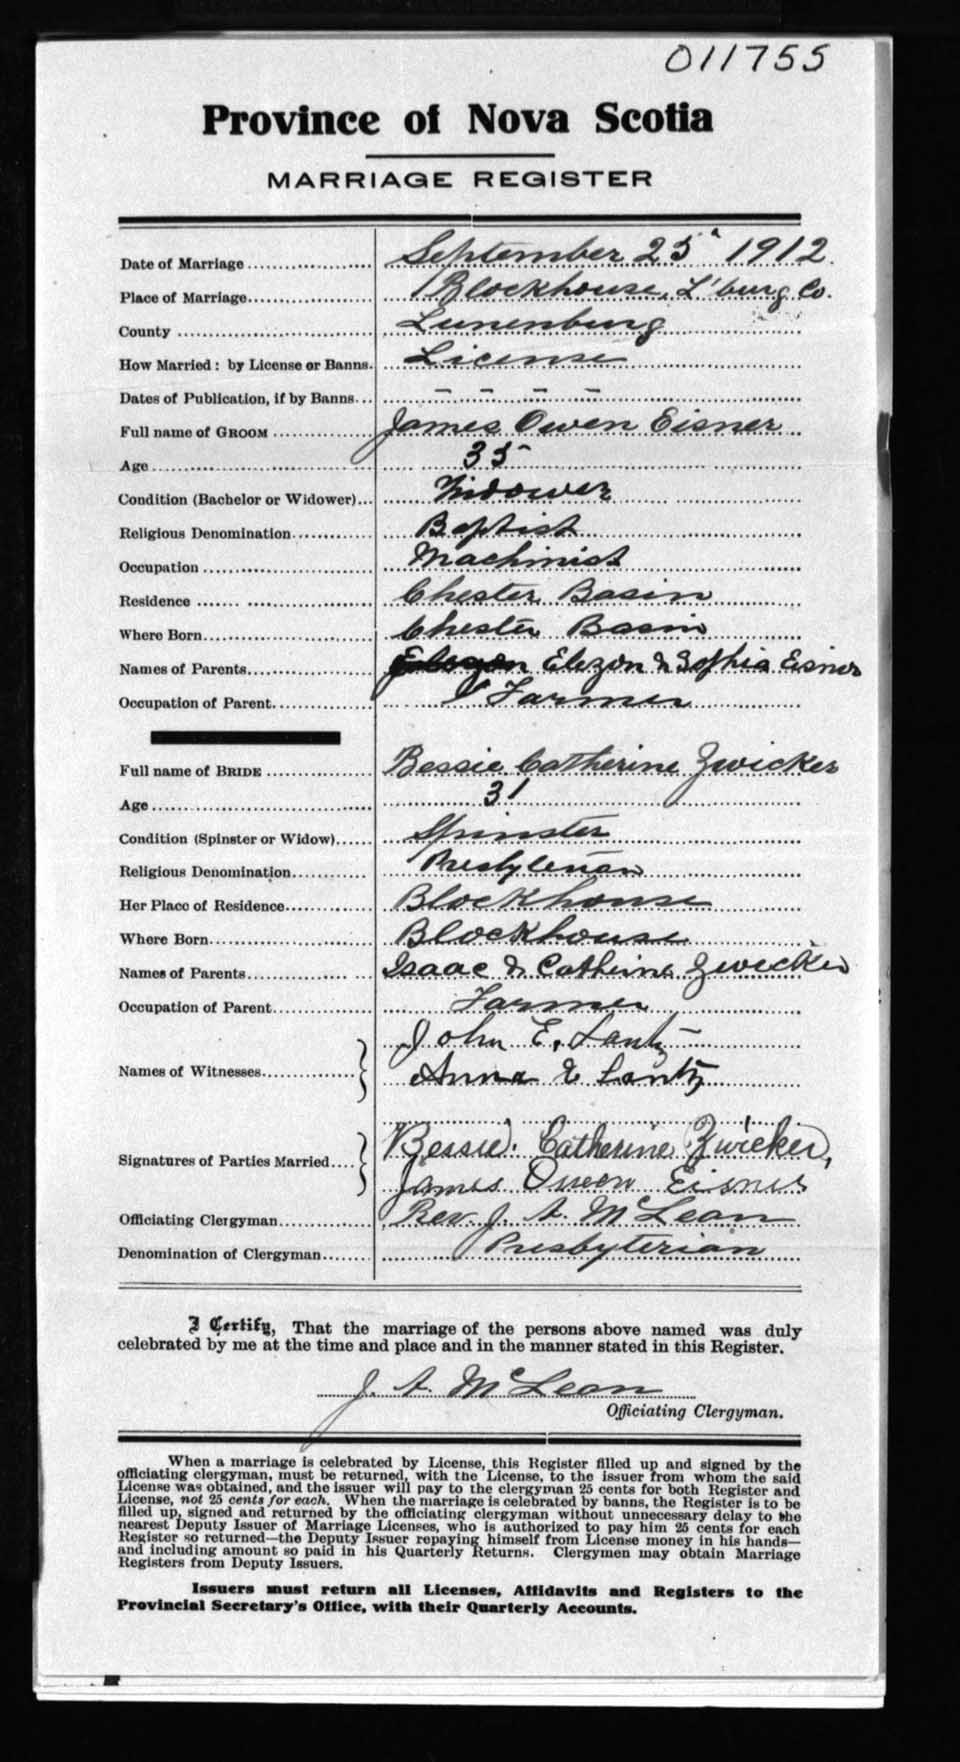 011755
Province of Nova Scotia
MARRIAGE REGISTER
Date of Marriage September 25 1912.
Place of Marriage Blockhouse, L'burg Co.
County Lunenburg
How Married: by License or Banns. License
Dates of Publication, if by Banns - - - -
Full name of GROOM James Owen Eisner
Age 35
Condition (Bachelor or Widower) Widower
Religious Denomination Baptist
Occupation Machinist
Residence Chester Basin
Where Born Chester Basin
Names of Parents Elezon & Sophia Eisner
Occupation of Parent Farmer
Full name of BRIDE Bessie Catherine Zwicker
Age 31
Condition (Spinster or Widow) Spinster
Religious Denomination Presbyterian
Her Place of Residence Blockhouse
Where Born Blockhouse
Names of Parents Isaac & Catherine Zwicker
Occupation of Parent Farmer
Names of Witnesses John E. Lantz
Anna E Lantz
Signatures of Parties Married Bessie Catherine Zwicker,
James Owen Eisner
Officiating Clergyman Rev. J. A. McLean
Denomination of Clergyman Presbyterian
I Certify, That the marriage of the persons above named was duly
celebrated by me at the time and place and in the manner stated in this Register.
J. A. McLean
Officiating Clergyman.
When a marriage is celebrated by License, this Register filled up and signed by the
officiating clergyman, must be returned, with the License, to the issuer from whom the said
License was obtained, and the issuer will pay to the clergyman 25 cents for both Register and
License, not 25 cents for each. When the marriage is celebrated by banns, the Register is to be
filled up, signed and returned by the officiating clergyman without unnecessary delay to the
nearest Deputy Issuer of Marriage Licenses, who is authorized to pay him 25 cents for each
Register so returned—the Deputy Issuer repaying himself from License money in his hands—
and including amount so paid in his Quarterly Returns. Clergymen may obtain Marriage
Registers from Deputy Issuers.
Issuers must return all Licenses, Affidavits and Registers to the
Provincial Secretary's Office, with their Quarterly Accounts.